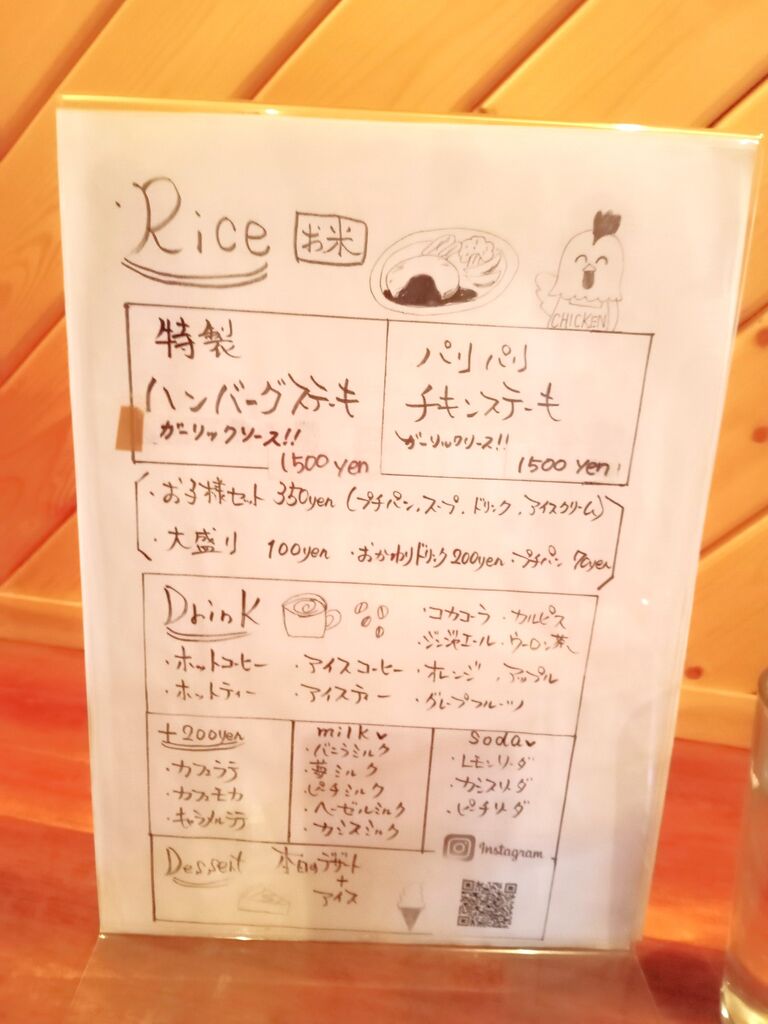 Rice お米
CHICKEN
特製
ハンバーグステーキ
ガーリックソース!!
1500 yen
パリパリ
チキンステーキ
ガーリックソース!!
1500 yen
・お子様セット 350yen (プチパン、スープ、ドリンク、アイスクリーム)
・大盛り 100yen ・おかわりドリンク200yen ・プチパン 70yen
Drink
・コカコーラ ・カルピス
・ジンジャエール ・ウーロン茶
・ホットコーヒー ・アイスコーヒー ・オレンジ ・アップル
・ホットティー ・アイスティー ・グレープフルーツ
+200yen
・カフェラテ
・カフェモカ
・キャラメルラテ
milk♥
・バニラミルク
・苺ミルク
・ピーチミルク
・ヘーゼルミルク
・カシスミルク
Soda♥
・レモンソーダ
・カシスソーダ
・ピーチソーダ
Instagram
Dessert 本日のデザート
+
アイス